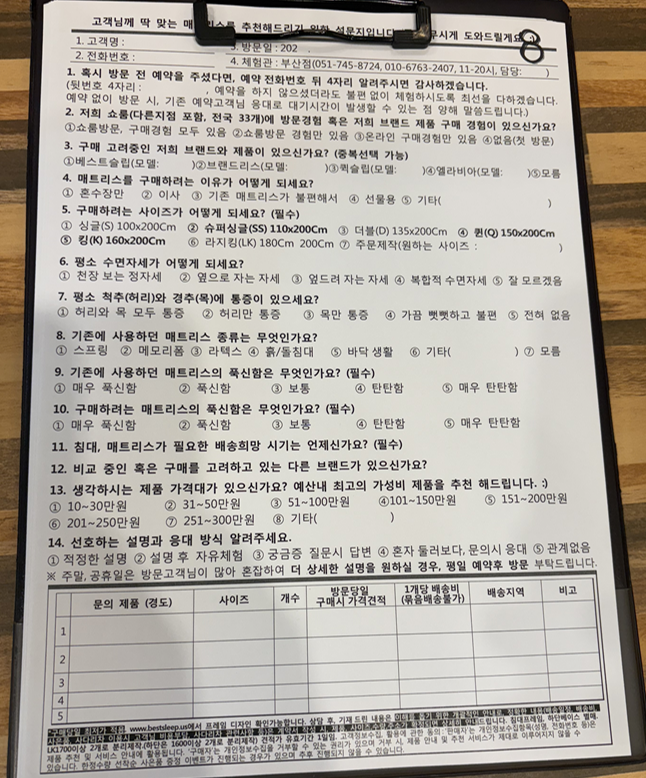 고객님께 딱 맞는 매트리스를 추천해드리기 위한 설문지입니다
8
1. 고객명 :
3. 방문일 : 202 .
2. 전화번호 :
4. 체험관 : 부산점(051-745-8724, 010-6763-2407, 11-20시, 담당: )
1. 혹시 방문 전 예약을 주셨다면, 예약 전화번호 뒤 4자리 알려주시면 감사하겠습니다.
(뒷번호 4자리 : , 예약을 하지 않으셨더라도 불편 없이 체험하시도록 최선을 다하겠습니다.
예약 없이 방문 시, 기존 예약고객님 응대로 대기시간이 발생할 수 있는 점 양해 말씀드립니다.)
2. 저희 쇼룸(다른지점 포함, 전국 33개)에 방문경험 혹은 저희 브랜드 제품 구매 경험이 있으신가요?
①쇼룸방문, 구매경험 모두 있음 ②쇼룸방문 경험만 있음 ③온라인 구매경험만 있음 ④없음(첫 방문)
3. 구매 고려중인 저희 브랜드와 제품이 있으신가요? (중복선택 가능)
①베스트슬립(모델: )②브랜드리스(모델: )③퀵슬립(모델: )④엘라비아(모델: )⑤모름
4. 매트리스를 구매하려는 이유가 어떻게 되세요?
① 혼수장만 ② 이사 ③ 기존 매트리스가 불편해서 ④ 선물용 ⑤ 기타( )
5. 구매하려는 사이즈가 어떻게 되세요? (필수)
① 싱글(S) 100x200Cm ② 슈퍼싱글(SS) 110x200Cm ③ 더블(D) 135x200Cm ④ 퀸(Q) 150x200Cm
⑤ 킹(K) 160x200Cm ⑥ 라지킹(LK) 180Cm 200Cm ⑦ 주문제작(원하는 사이즈 : )
6. 평소 수면자세가 어떻게 되세요?
① 천장 보는 정자세 ② 옆으로 자는 자세 ③ 엎드려 자는 자세 ④ 복합적 수면자세 ⑤ 잘 모르겠음
7. 평소 척추(허리)와 경추(목)에 통증이 있으세요?
① 허리와 목 모두 통증 ② 허리만 통증 ③ 목만 통증 ④ 가끔 뻣뻣하고 불편 ⑤ 전혀 없음
8. 기존에 사용하던 매트리스 종류는 무엇인가요?
① 스프링 ② 메모리폼 ③ 라텍스 ④ 흙/돌침대 ⑤ 바닥 생활 ⑥ 기타( ) ⑦ 모름
9. 기존에 사용하던 매트리스의 푹신함은 무엇인가요? (필수)
① 매우 푹신함 ② 푹신함 ③ 보통 ④ 탄탄함 ⑤ 매우 탄탄함
10. 구매하려는 매트리스의 푹신함은 무엇인가요? (필수)
① 매우 푹신함 ② 푹신함 ③ 보통 ④ 탄탄함 ⑤ 매우 탄탄함
11. 침대, 매트리스가 필요한 배송희망 시기는 언제신가요? (필수)
12. 비교 중인 혹은 구매를 고려하고 있는 다른 브랜드가 있으신가요?
13. 생각하시는 제품 가격대가 있으신가요? 예산내 최고의 가성비 제품을 추천 해드립니다. :)
① 10~30만원 ② 31~50만원 ③ 51~100만원 ④101~150만원 ⑤ 151~200만원
⑥ 201~250만원 ⑦ 251~300만원 ⑧ 기타( )
14. 선호하는 설명과 응대 방식 알려주세요.
① 적정한 설명 ② 설명 후 자유체험 ③ 궁금증 질문시 답변 ④ 혼자 둘러보다, 문의시 응대 ⑤ 관계없음
※ 주말,공휴일은 방문고객님이 많아 혼잡하여 더 상세한 설명을 원하실 경우, 평일 예약후 방문 부탁드립니다.
문의 제품 (경도) 사이즈 개수 방문당일 구매시 가격견적 1개당 배송비 (묶음배송불가) 배송지역 비고
1
2
3
4
5
www.bestsleep.us에서 프레임 디자인 확인가능합니다. 상담 후, 기재 드린 내용은
LK1700이상 2개로 분리제작/하단은 1600이상 2개로 분리제작) 견적가 유효기간 1일입니다.
제품 추천 및 서비스 안내에 활용됩니다. '구매자'는 개인정보수집을 거부할 수 있는 권리가 있으며 거부 시, 제품 안내 및 추천 서비스가 제대로 이루어지지 않을 수
있습니다. 한정수량 선착순 사은품 증정 이벤트가 진행되는 경우가 있으며 추후 진행되지 않을 수 있습니다.